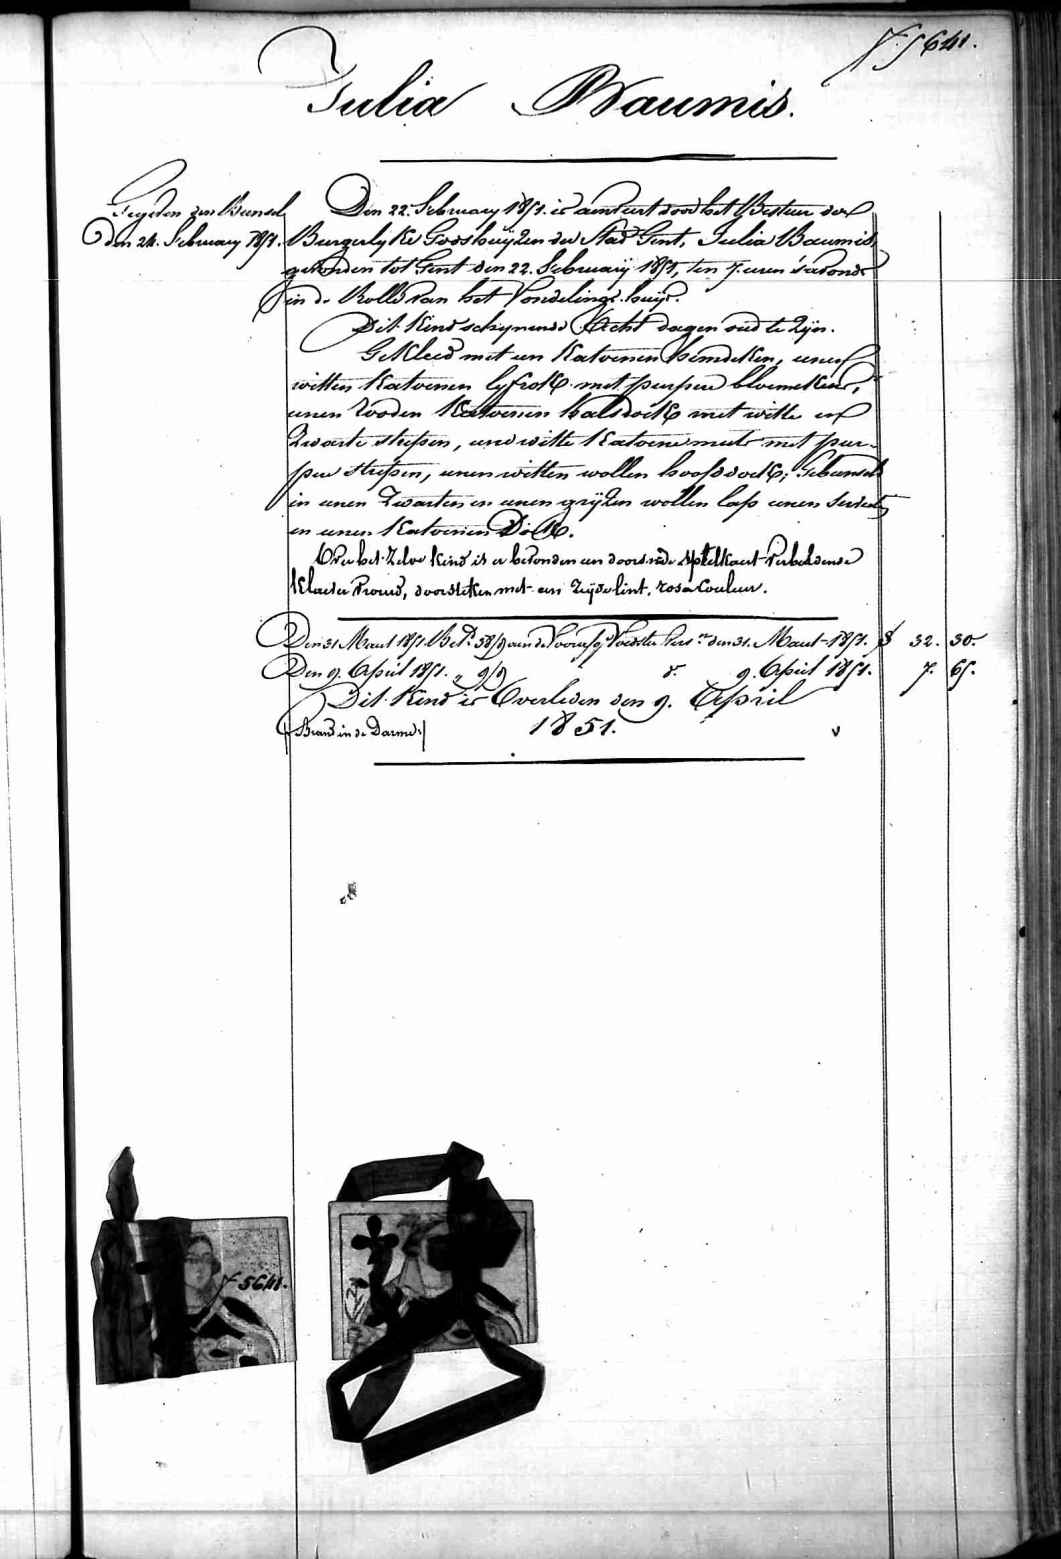 f 5641.
Julia Baumis.
Gegeven den Bunsel
den 24. February 1851.
Den 22. February 1851. is aenveert door het Bestuer der
Burgerlyke Godshuijzen der Stad Gent, Julia Baumis,
gevonden tot Gent den 22. February 1851, ten 7. uren 's avonds
in de Rolle van het Vondelings-huijs.
Dit Kind schynende Acht dagen oud te Zyn.
Gekleed met een Katoenen hemdeken, eenen
witten Katoenen lyfrok met purpere bloemekens,
eenen rooden Katoenen halsdoek met witte en
Zwarte strepen, eene witte Katoene muts met pur-
pere strepen, eenen witten wollen hoofddoek; Gebunselt
in eenen Zwarten en eenen grijzen wollen lap eenen
en eenen Katoenen Doek.
Over het Zelve Kind is er bevonden een doorsnede Spelkaert Verbeldende
Klaver Vrouw, doorsteken met een Zyde lint, rosa Couleur.
Den 31. Maert 1851. Bet.d 38/ aen de Voedster den 31. Maert 1851. f 32. 30.
Den 9. April 1851. „ 9/9 d.° 9. April 1851. 7. 65.
Dit Kind is Overleden den 9. April
1851.
Brand in de Darme
v
f 5641.